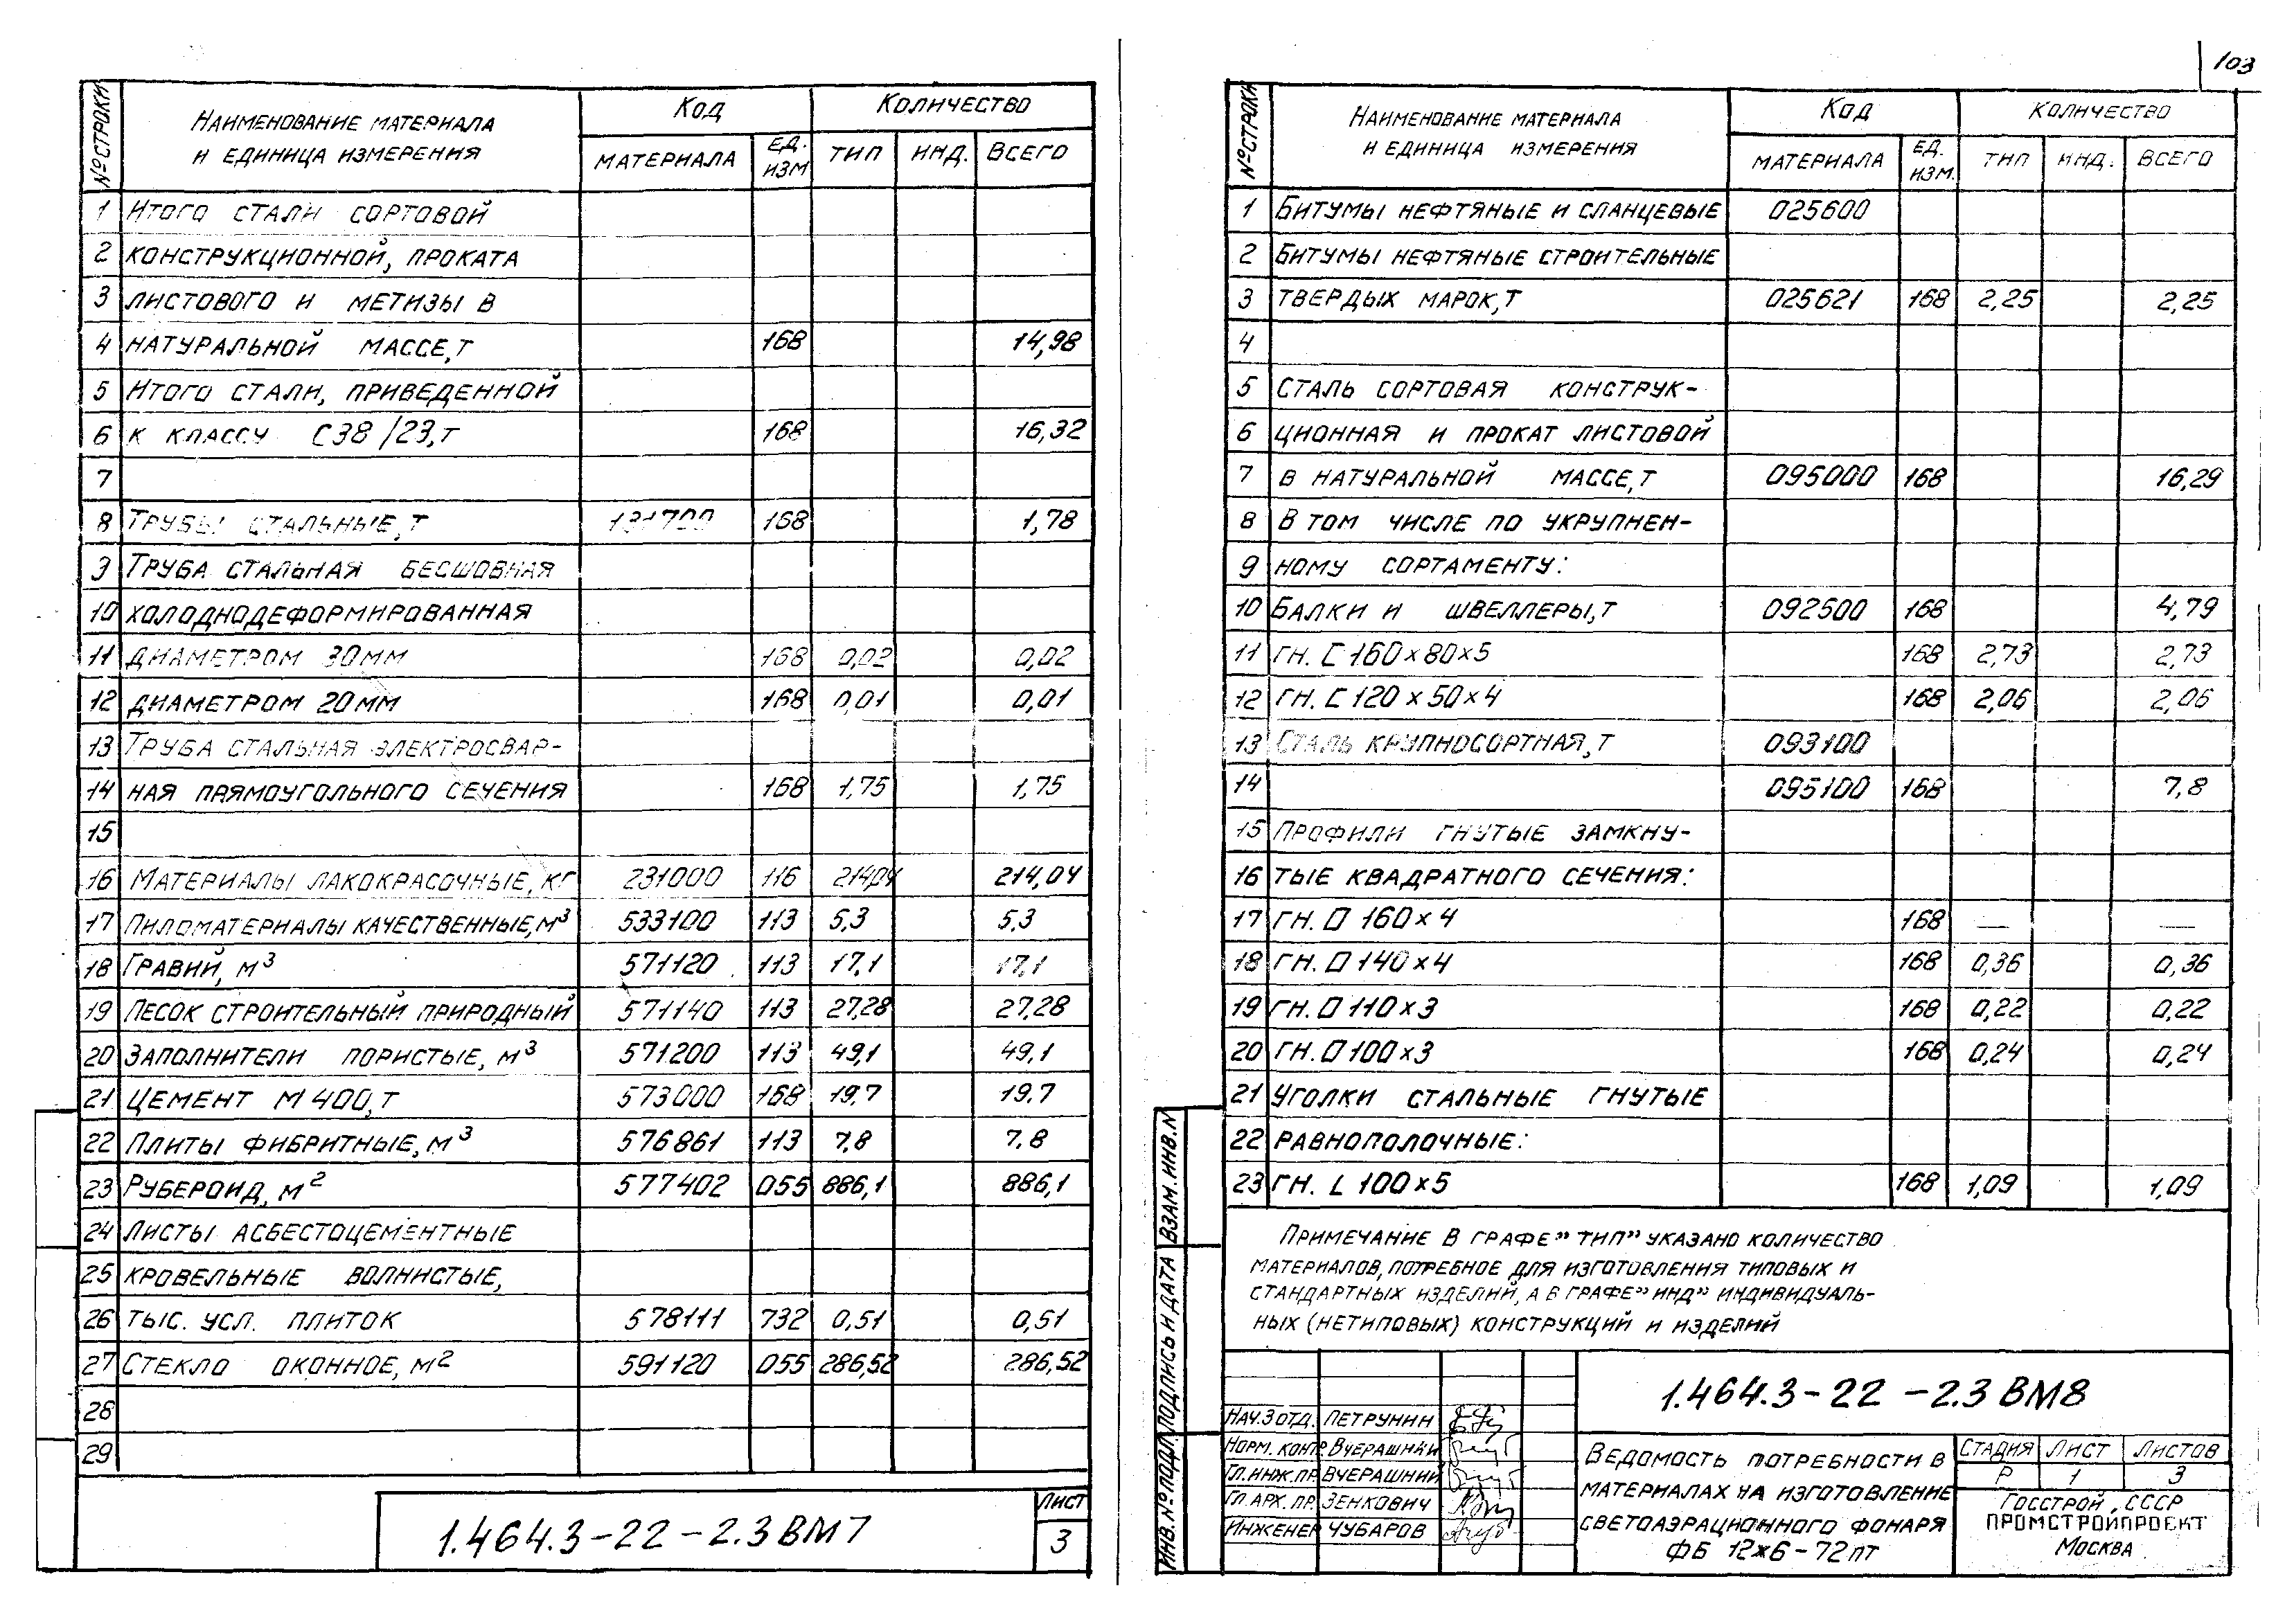 103
№ СТРОКИ | НАИМЕНОВАНИЕ МАТЕРИАЛА И ЕДИНИЦА ИЗМЕРЕНИЯ | КОД | КОЛИЧЕСТВО
МАТЕРИАЛА | ЕД. ИЗМ | ТИП | ИНД. | ВСЕГО
1 ИТОГО СТАЛИ СОРТОВОЙ
2 КОНСТРУКЦИОННОЙ, ПРОКАТА
3 ЛИСТОВОГО И МЕТИЗЫ В
4 НАТУРАЛЬНОЙ МАССЕ,Т 168 14,98
5 ИТОГО СТАЛИ, ПРИВЕДЕННОЙ
6 К КЛАССУ С38/23,Т 168 16,32
7
8 ТРУБЫ СТАЛЬНЫЕ,Т 131700 168 1,78
9 ТРУБА СТАЛЬНАЯ БЕСШОВНАЯ
10 ХОЛОДНОДЕФОРМИРОВАННАЯ
11 ДИАМЕТРОМ 30ММ 168 0,02 0,02
12 ДИАМЕТРОМ 20ММ 168 0,01 0,01
13 ТРУБА СТАЛЬНАЯ ЭЛЕКТРОСВАР-
14 НАЯ ПРЯМОУГОЛЬНОГО СЕЧЕНИЯ 168 1,75 1,75
15
16 МАТЕРИАЛЫ ЛАКОКРАСОЧНЫЕ, КГ 231000 116 214,04 214,04
17 ПИЛОМАТЕРИАЛЫ КАЧЕСТВЕННЫЕ,М³ 533100 113 5,3 5,3
18 ГРАВИЙ, М³ 571120 113 17,1 17,1
19 ПЕСОК СТРОИТЕЛЬНЫЙ ПРИРОДНЫЙ 571140 113 27,28 27,28
20 ЗАПОЛНИТЕЛИ ПОРИСТЫЕ, М³ 571200 113 49,1 49,1
21 ЦЕМЕНТ М400,Т 573000 168 19,7 19,7
22 ПЛИТЫ ФИБРИТНЫЕ, М³ 576861 113 7,8 7,8
23 РУБЕРОИД, М² 577402 055 886,1 886,1
24 ЛИСТЫ АСБЕСТОЦЕМЕНТНЫЕ
25 КРОВЕЛЬНЫЕ ВОЛНИСТЫЕ,
26 ТЫС. УСЛ. ПЛИТОК 578111 732 0,51 0,51
27 СТЕКЛО ОКОННОЕ, М² 591120 055 286,52 286,52
28
29
1.464.3-22-2.3 ВМ7
ЛИСТ
3
№ СТРОКИ | НАИМЕНОВАНИЕ МАТЕРИАЛА И ЕДИНИЦА ИЗМЕРЕНИЯ | КОД | КОЛИЧЕСТВО
МАТЕРИАЛА | ЕД. ИЗМ. | ТИП | ИНД. | ВСЕГО
1 БИТУМЫ НЕФТЯНЫЕ И СЛАНЦЕВЫЕ 025600
2 БИТУМЫ НЕФТЯНЫЕ СТРОИТЕЛЬНЫЕ
3 ТВЕРДЫХ МАРОК,Т 025621 168 2,25 2,25
4
5 СТАЛЬ СОРТОВАЯ КОНСТРУК-
6 ЦИОННАЯ И ПРОКАТ ЛИСТОВОЙ
7 В НАТУРАЛЬНОЙ МАССЕ,Т 095000 168 16,29
8 В ТОМ ЧИСЛЕ ПО УКРУПНЕН-
9 НОМУ СОРТАМЕНТУ:
10 БАЛКИ И ШВЕЛЛЕРЫ,Т 092500 168 4,79
11 ГН. [ 160×80×5 168 2,73 2,73
12 ГН. [ 120×50×4 168 2,06 2,06
13 СТАЛЬ КРУПНОСОРТНАЯ,Т 093100
14 095100 168 7,8
15 ПРОФИЛИ ГНУТЫЕ ЗАМКНУ-
16 ТЫЕ КВАДРАТНОГО СЕЧЕНИЯ:
17 ГН. □ 160×4 168 — —
18 ГН. □ 140×4 168 0,36 0,36
19 ГН. □ 110×3 168 0,22 0,22
20 ГН. □ 100×3 168 0,24 0,24
21 УГОЛКИ СТАЛЬНЫЕ ГНУТЫЕ
22 РАВНОПОЛОЧНЫЕ:
23 ГН. L 100×5 168 1,09 1,09
ПРИМЕЧАНИЕ В ГРАФЕ "ТИП" УКАЗАНО КОЛИЧЕСТВО
МАТЕРИАЛОВ, ПОТРЕБНОЕ ДЛЯ ИЗГОТОВЛЕНИЯ ТИПОВЫХ И
СТАНДАРТНЫХ ИЗДЕЛИЙ, А В ГРАФЕ "ИНД" ИНДИВИДУАЛЬ-
НЫХ (НЕТИПОВЫХ) КОНСТРУКЦИЙ И ИЗДЕЛИЙ
ИНВ. № ПОДЛ. ПОДПИСЬ И ДАТА ВЗАМ. ИНВ. N
НАЧ.ЗОТД. ПЕТРУНИН
НОРМ. КОНТР. ВЧЕРАШНИЙ
ГЛ.ИНЖ.ПР. ВЧЕРАШНИЙ
ГЛ. АРХ. ПР. ЗЕНКОВИЧ
ИНЖЕНЕР ЧУБАРОВ
1.464.3-22-2.3 ВМ8
ВЕДОМОСТЬ ПОТРЕБНОСТИ В
МАТЕРИАЛАХ НА ИЗГОТОВЛЕНИЕ
СВЕТОАЭРАЦИОННОГО ФОНАРЯ
ФБ 12×6-72ПТ
СТАДИЯ ЛИСТ ЛИСТОВ
Р 1 3
ГОССТРОЙ СССР
ПРОМСТРОЙПРОЕКТ
МОСКВА